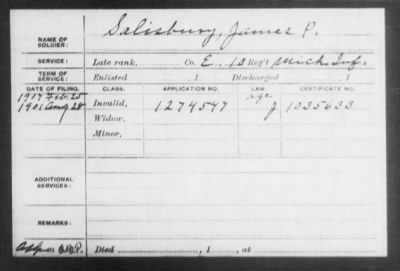 NAME OF SOLDIER: Salisbury, James P.
SERVICE: Late rank, Co. E, 13 Reg't Mich Inf.
TERM OF SERVICE: Enlisted , 1 Discharged , 1
DATE OF FILING. CLASS. APPLICATION NO. LAW CERTIFICATE NO.
1907 Feb. 25 age
1901 Aug 28 Invalid, 1274547 1035633
Widow,
Minor,
ADDITIONAL SERVICES:
REMARKS:
Died , 1 , at